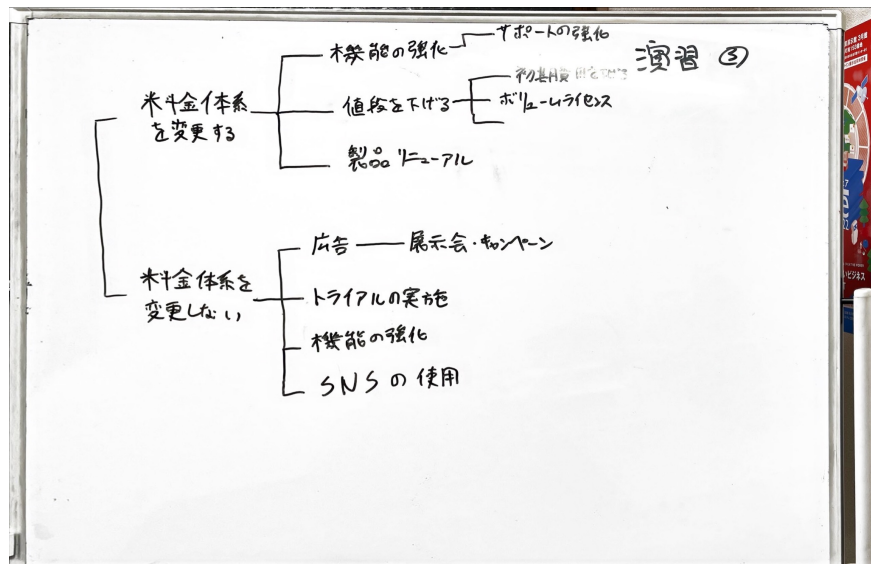 演習 ③
料金体系
を変更する
機能の強化
サポートの強化
値段を下げる
初期費用を下げる
ボリュームライセンス
製品リニューアル
料金体系を
変更しない
広告
展示会・キャンペーン
トライアルの実施
機能の強化
SNSの使用
ビジネス